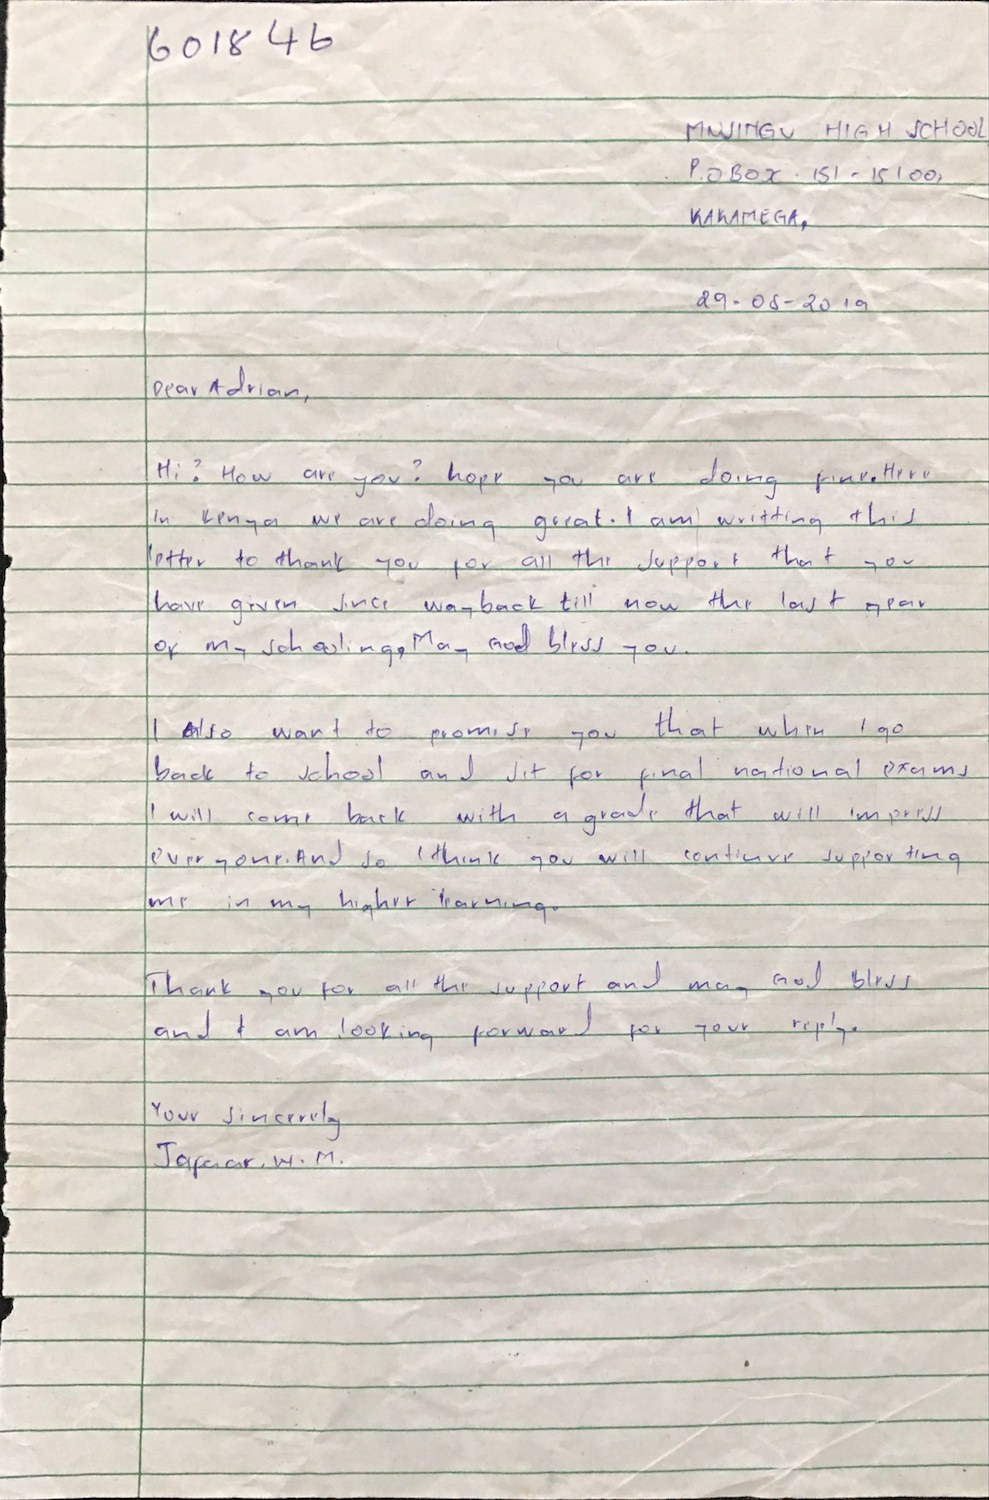 601846
HIGH SCHOOL
P.O BOX . 151 - 15100,
KAKAMEGA,
29-08-2019
Dear Adrian,
Hi? How are you? hope you are doing fine. Here
in kenya we are doing great. I am writting this
letter to thank you for all the support that you
have given since wayback till now the last year
of my schooling, May God bless you.
I Also want to promise you that when I go
back to school and sit for final national exams
I will come back with a grade that will impress
everyone. And so I think you will continue supporting
me in my higher learning.
Thank you for all the support and may God bless
and I am looking forward for your reply.
Your sincerely
Jafaar. W. M.